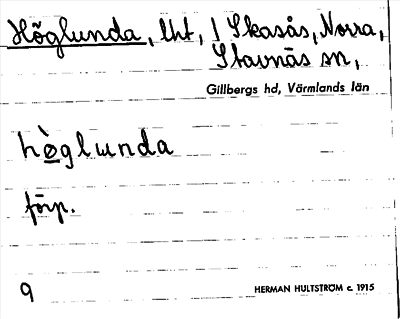 Höglunda, lht, 1 Skasås, Norra,
Stavnäs sn,
Gillbergs hd, Värmlands län
hø̀glunda
förp.
9
HERMAN HULTSTRÖM c. 1915